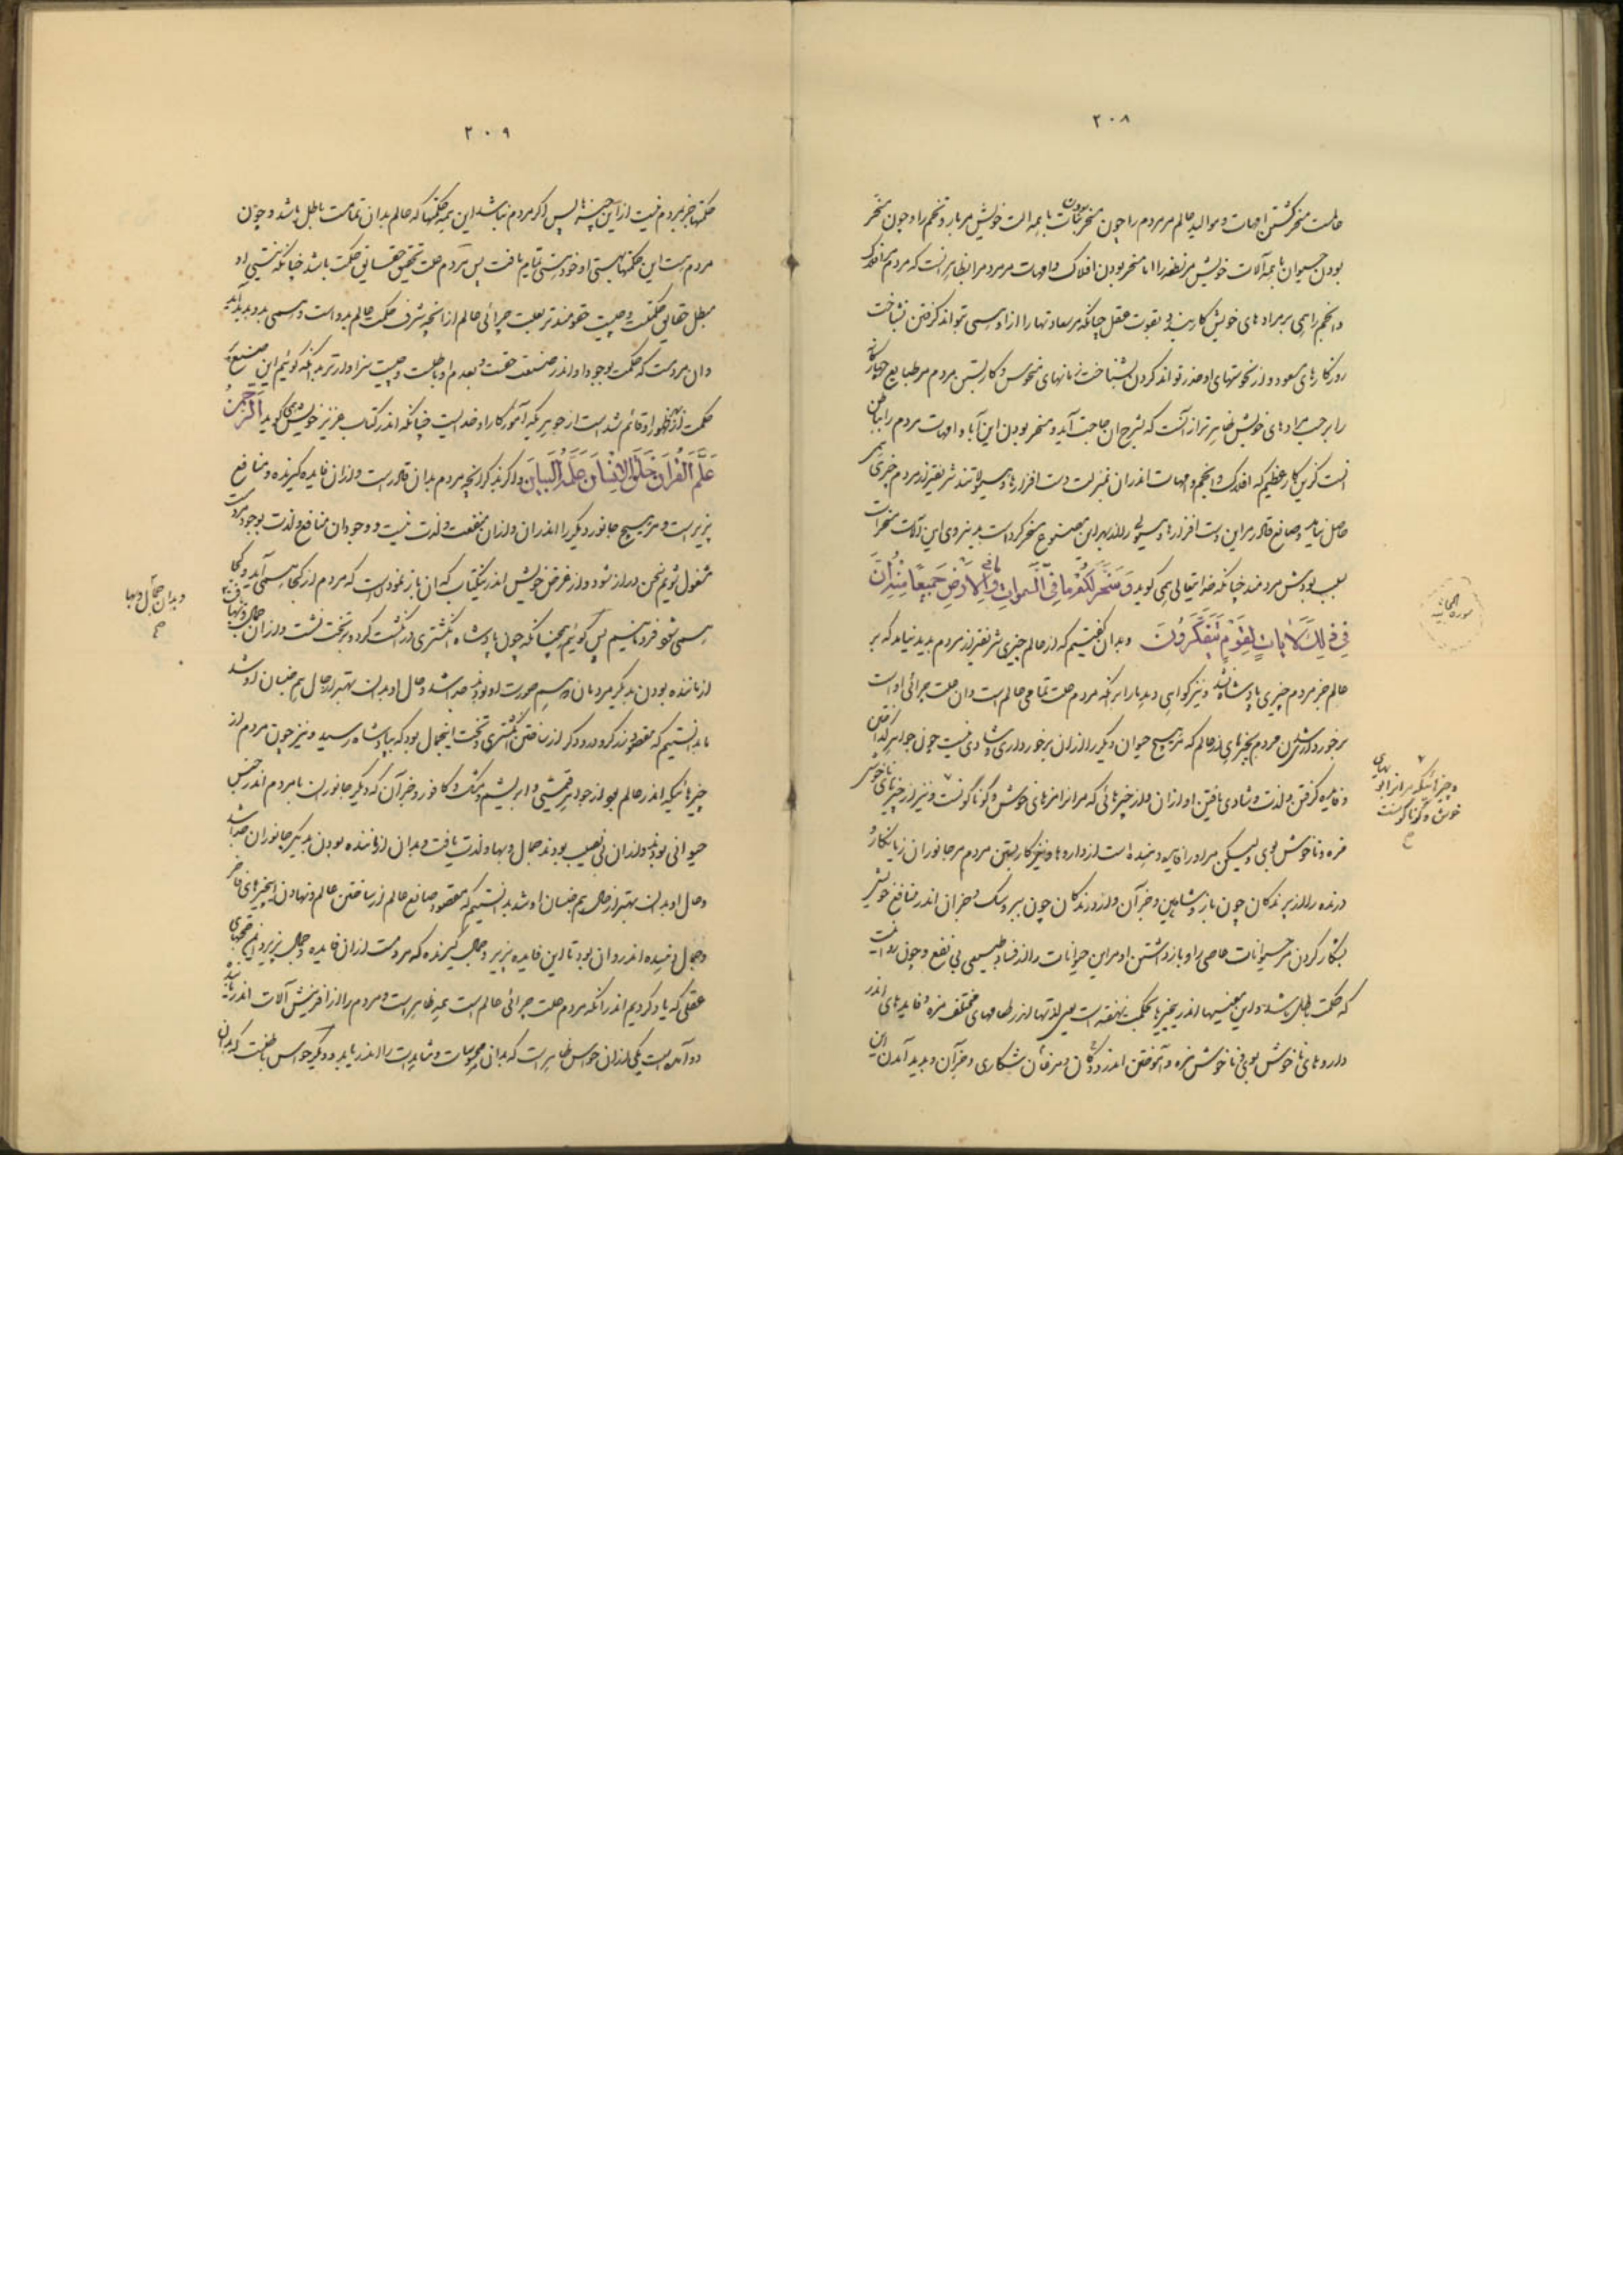 ٢٠٨
حالست مسخر گشتن امهات و موالید عالم مر مردم را چون مسخر بودن نبات با همه الت خویش مر بار و تخم را و چون مسخر
بودن حیوان با همه آلات خویش مر نطفه را اما مسخر بودن افلاک و امهات مر مردم را بظاهر انست که مردم افلاک
و انجم را همی بر مرادهای خویش کار بندد بقوت عقل چنانکه مر سعادتها را از او همی تواند گرفتن بشناخت
روزگارهای مسعود و از نحوستهای او حذر تواند کردن بشناخت زمانهای منحوس و کار بستن مردم مر طبایع چهارگانه
را بر حسب مرادهای خویش ظاهر تر از آنست که بشرح ان حاجت آید و مسخر بودن این آباء و امهات مردم را بباطن
انست کزین کار عظیم که افلاک و انجم و امهات اندران بمنزلت دست افزارها و میولاتند شریفتر از مردم چیزی همی
حاصل نیاید و صانع قادر مر این دست افزارها و هیولی را از بهر این مصنوع مسخر کرده است و بنیروی این آلات مسخرات
بسبب بودش مردمند چنانکه خدایتعالی همی گوید وَسَخَّرَ لَكُمْ مَا فِي السَّمٰوَاتِ وَمَا فِي الْاَرْضِ جَمِيعًا مِنْهُ اِنَّ
فِي ذٰلِكَ لَاٰيَاتٍ لِقَوْمٍ يَتَفَكَّرُونَ و بدان گفتیم که از عالم چیزی شریفتر از مردم پدید نیامد که بر
عالم جز مردم چیزی پادشاه نشد و نیز گواهی دهد ما را بر انکه مردم علت تمامی عالم است و ان علت چرائی او است
برخوردار شدن مردم بچیزهای از عالم که مر هیچ حیوان دیگر را از ان برخورداری و شادی نیست چون جواهر گداختن
و فایده گرفتن و لذت و شادی یافتن او از ان و از چیزهائی که مر انرا مزهای خوش و گوناگونست و نیز از چیزهای ناخوش
مزه و ناخوش بوی ولیکن مر او را فایده دهنده است از داروها و نیز کار بستن مردم مر جانوران زیانکار و
درنده را از پرندگان چون باز و شاهین و جز آن و از درندگان چون ببر و سگ و جز ان اندر منافع خویش
بشکار کردن مر حیوانات عاصی را و باز داشتن او مر این حیوانات را از فساد طبیعی بی نفع و چون روا نیست
که حکمت باطل باشد و این معنیها اندر چیزها بحکمت نهفته است یعنی لذتها اندر طعامهای مختلف مزه و فایدهای اندر
داروهای ناخوش بوی ناخوش مزه و آموختن اندر ددگان و مرغان شکاری و جز آن و پدید آمدن این
سورة الجاثیه
و چیزهائیکه مر انرا بویهای
خوش و گوناگونست
ح
٢٠٩
حکمتها جز بمردم نیست از این چیزها پس اگر مردم نباشد این همه حکمتها که عالم بدان تمامست باطل باشد و چون
مردم هست این حکمتها بهستی او خود هستی تمام یافت پس مردم علت تحقیق حقایق حکمت باشد چنانکه نیستی او
مبطل حقایق حکمتست و چیست حقومندتر بعلت چرائی عالم از انچه شرف حکمت عالم بدو است و همی بدو پدید آید
و ان مردمست که حکمت بوجود او اندر صنعت حقست و بعدم او باطلست و چیست سزاوارتر بدانکه گوئیم این صنع پر
حکمت از بهر ظهور او قائم شده است از جوهریکه آموزگار او خدایست چنانکه اندر کتاب عزیز خویش همی گوید اَلرَّحْمٰنُ
عَلَّمَ الْقُرْاٰنَ خَلَقَ الْاِنْسَانَ عَلَّمَهُ الْبَيَانَ و اگر بذکر انچه مردم بدان قادر است و از ان فایده گیرنده و منافع
پزیر است و مر هیچ جانور دیگر را اندران و از ان منفعت و لذت نیست و وجود ان منافع و لذت بوجود مردمست
مشغول شویم سخن دراز شود و از غرض خویش اندر کتاب که ان باز نمودنست که مردم از کجا همی آید و کجا
همی شود فرو مانیم پس گوئیم همچنانکه چون پادشاه انگشتری در انگشت کرد و بر تخت نشست و از ان جمال و بها یافت
از ماننده بودن بدیگر مردمان هم صورت او بود جدا شد و حال او بدان بهتر از حال هم جنسان او شد
ما بدانستیم که مقصود زرگر و درودگر از ساختن انگشتری و تخت اینحال بود که بپادشاه رسید و نیز چون مردم از
چیزهائیکه اندر عالم بود از جواهر قیمتی و ابریشم و مشک و کافور و جز آن که دیگر جانوران با مردم اندر جنس
حیوانی بودند و از ان بی نصیب بودند جمال و بها و لذت یافت و بدان از ماننده بودن بدیگر جانوران جدا شد
و حال او بدان بهتر از حال هم جنسان او شد بدانستیم که مقصود صانع عالم از ساختن عالم و نهادن این چیزهای فاخر
و جمال دهنده اندر و ان بود تا این فایده پزیر و جمال گیرنده که مردمست از ان فایده و جمال پزیرد بدین حجتهای
عقلی که یاد کردیم اندر انکه مردم علت چرائی عالم است همه ظاهر است و مردم را از آفرینش آلات اندر یابنده
دو آمده است یکی از ان حواس ظاهر است که بدانی محسوسات و مشاهدات را اندر یابد و دیگر حواس باطنست که بدان
و بدان جمال و بها
ح